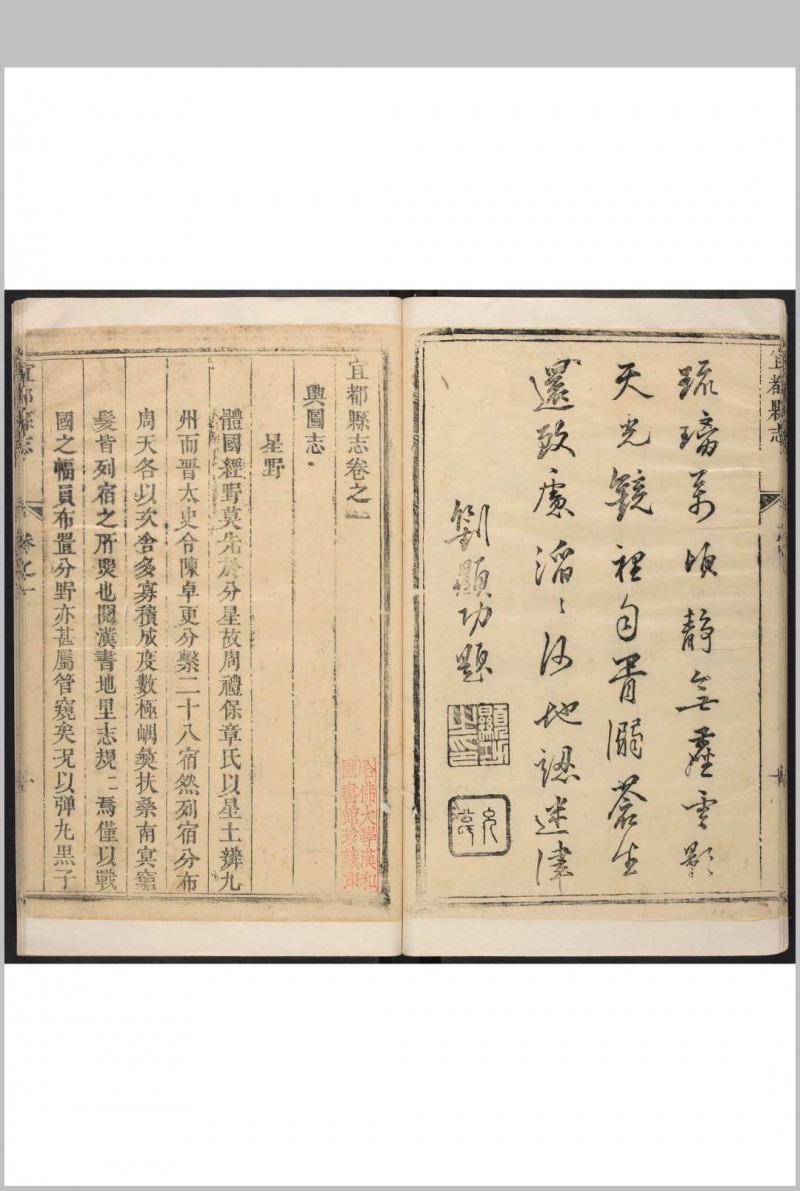 宜都縣志
疏璃萬頃靜無塵雲影
天光鏡裡匀胥溺蒼生
還致慮滔〻何地認迷津
劉顯功題
宜都縣志卷之一
輿圖志
星野
體國經野莫先於分星故周禮保章氏以星土辨九
州而晉太史令陳卓更分繫二十八宿然列宿分布
周天各以次舍多寡積成度數極嵎夷扶桑南㝠窮
髮皆列宿之所𨤲也閱漢書地里志規〻焉僅以戰
國之幅員布置分野亦甚屬管窺矣况以弹九黒子
宜都縣志
卷之一
一
哈佛大學漢和
圖書館珍藏印